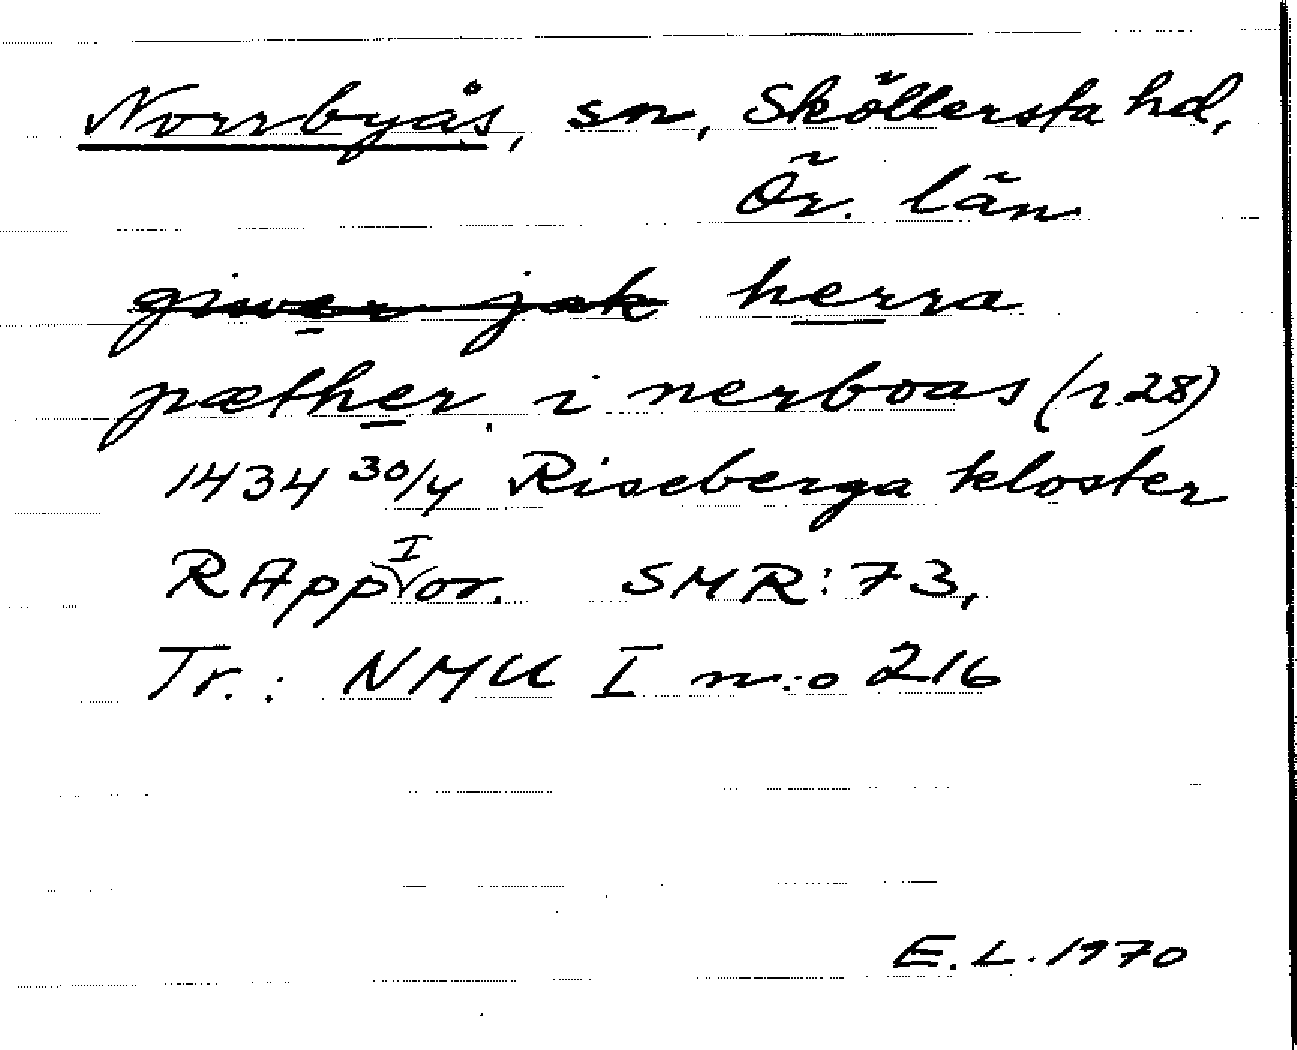 Norrbyås, sn, Sköllersta hd,
Ör. län
giwer jak herra
pæther i nerboas (r.28)
1434 30/4 Riseberga kloster
RApp I or. SMR:73,
Tr.: NMU I n:o 216
E.L. 1970